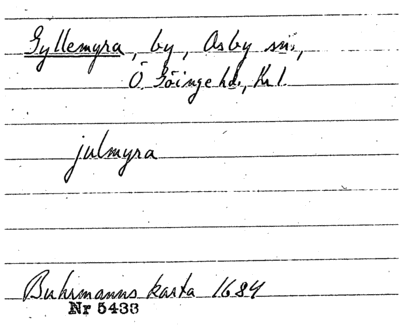 Gyllemyra, by, Osby sn.,
Ö. Göinge hd., Kr l.
julmyra
Buhrmanns karta 1684
Nr 5433